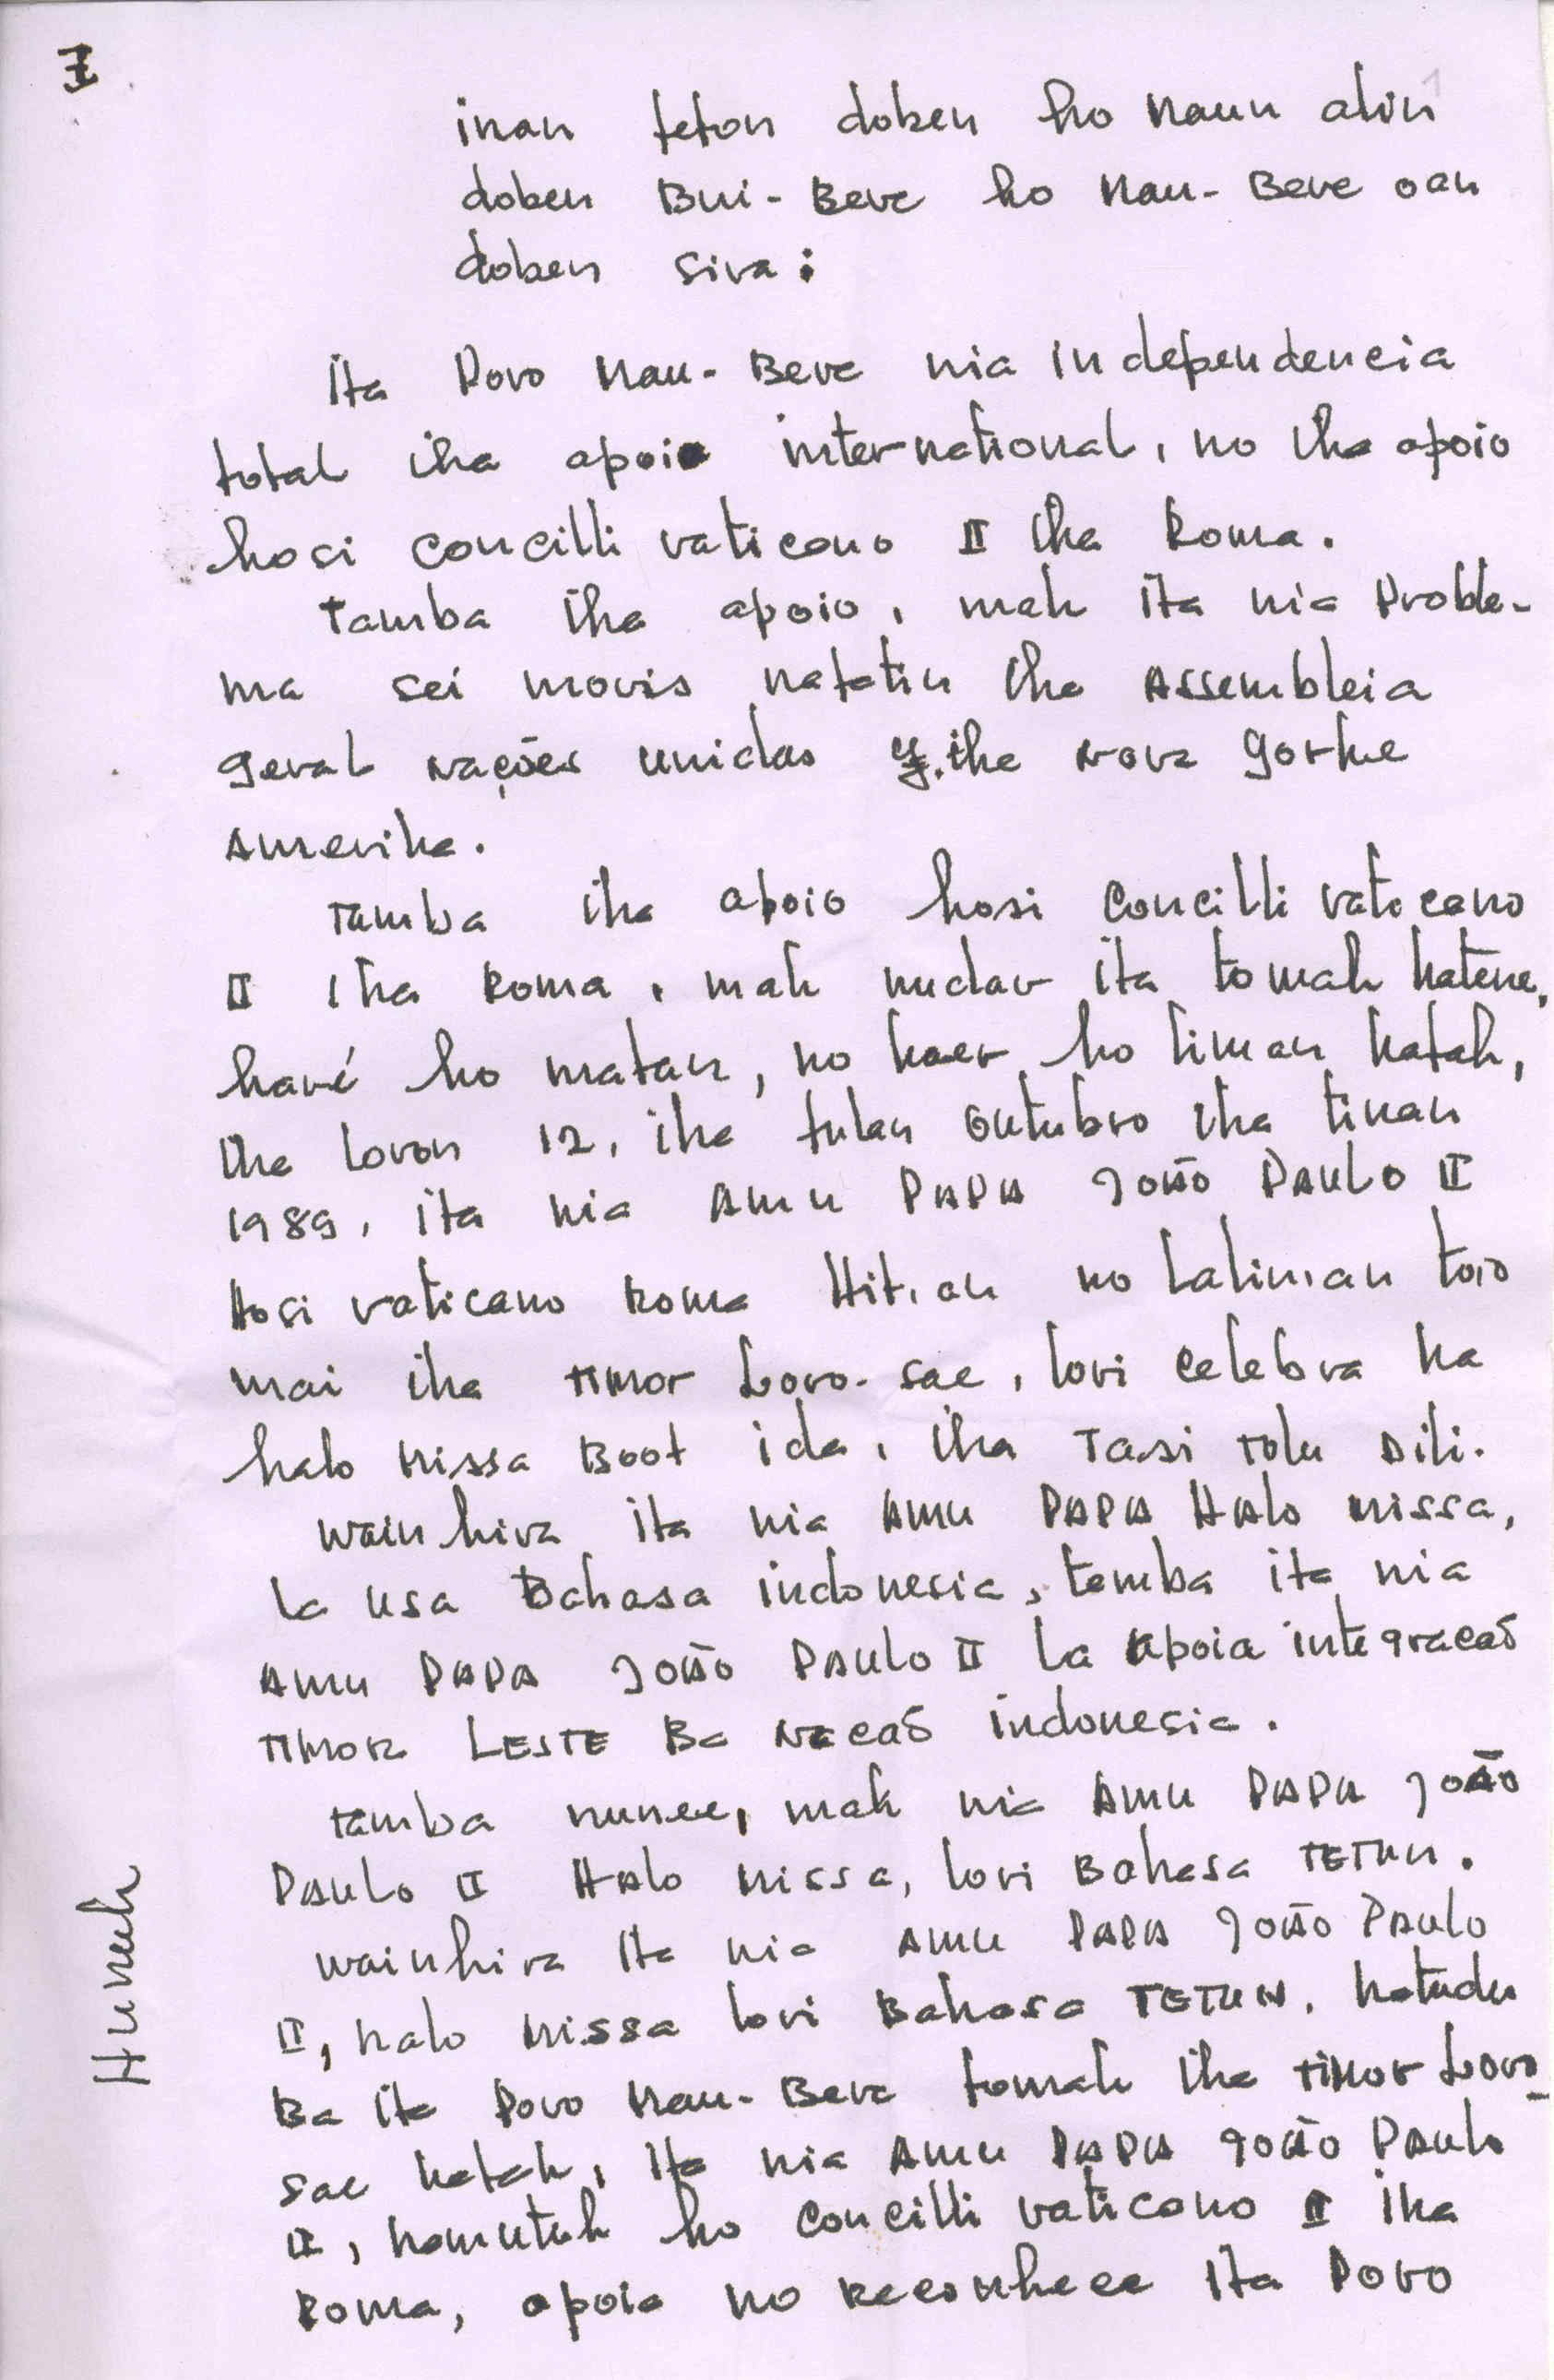 I
inan feton doben ho maun alin
doben Bui-Bere ho Mau-Bere oan
doben sira:
Ita Povo Mau-Bere nia independencia
total iha apoio international, no iha apoio
hosi concilli vaticano II iha Roma.
Tamba iha apoio, mak ita nia Proble-
ma sei moris nafatin iha Assembleia
geral nações unidas iha nova yorke
Amerika.
Tamba iha apoio hosi concilli vaticano
II iha Roma, mak nudar ita tomak hatene,
haré ho matan, no kaer ho liman katak,
iha loron 12, iha fulan Outubro iha tinan
1989, ita nia AMU PAPA JOÃO PAULO II
Hosi vaticano Roma Hit.an no laliman too
mai iha TIMOR Loro-sae, lori celebra ka
halo Missa Boot ida, iha Tasi Tolu Dili.
Wainhira ita nia AMU PAPA HALO Missa,
la usa Bahasa indonesia, tamba ita nia
AMU PAPA JOÃO PAULO II la apoia integracaõ
TIMOR LESTE Ba Nacaõ indonesia.
Tamba nunee, mak nia AMU PAPA JOÃO
PAULO II HALO Missa, lori Bahasa TETUN.
Wainhira ita nia AMU PAPA JOÃO PAULO
II, halo Missa lori Bahasa TETUN, hatudu
Ba ita Povo Mau-Bere tomak iha TIMOR Loro_
sae katak, ita nia AMU PAPA JOÃO PAULO
II, hamutuk ho concilli vaticano II iha
Roma, apoia no Reconhece ita Povo
Hunuk